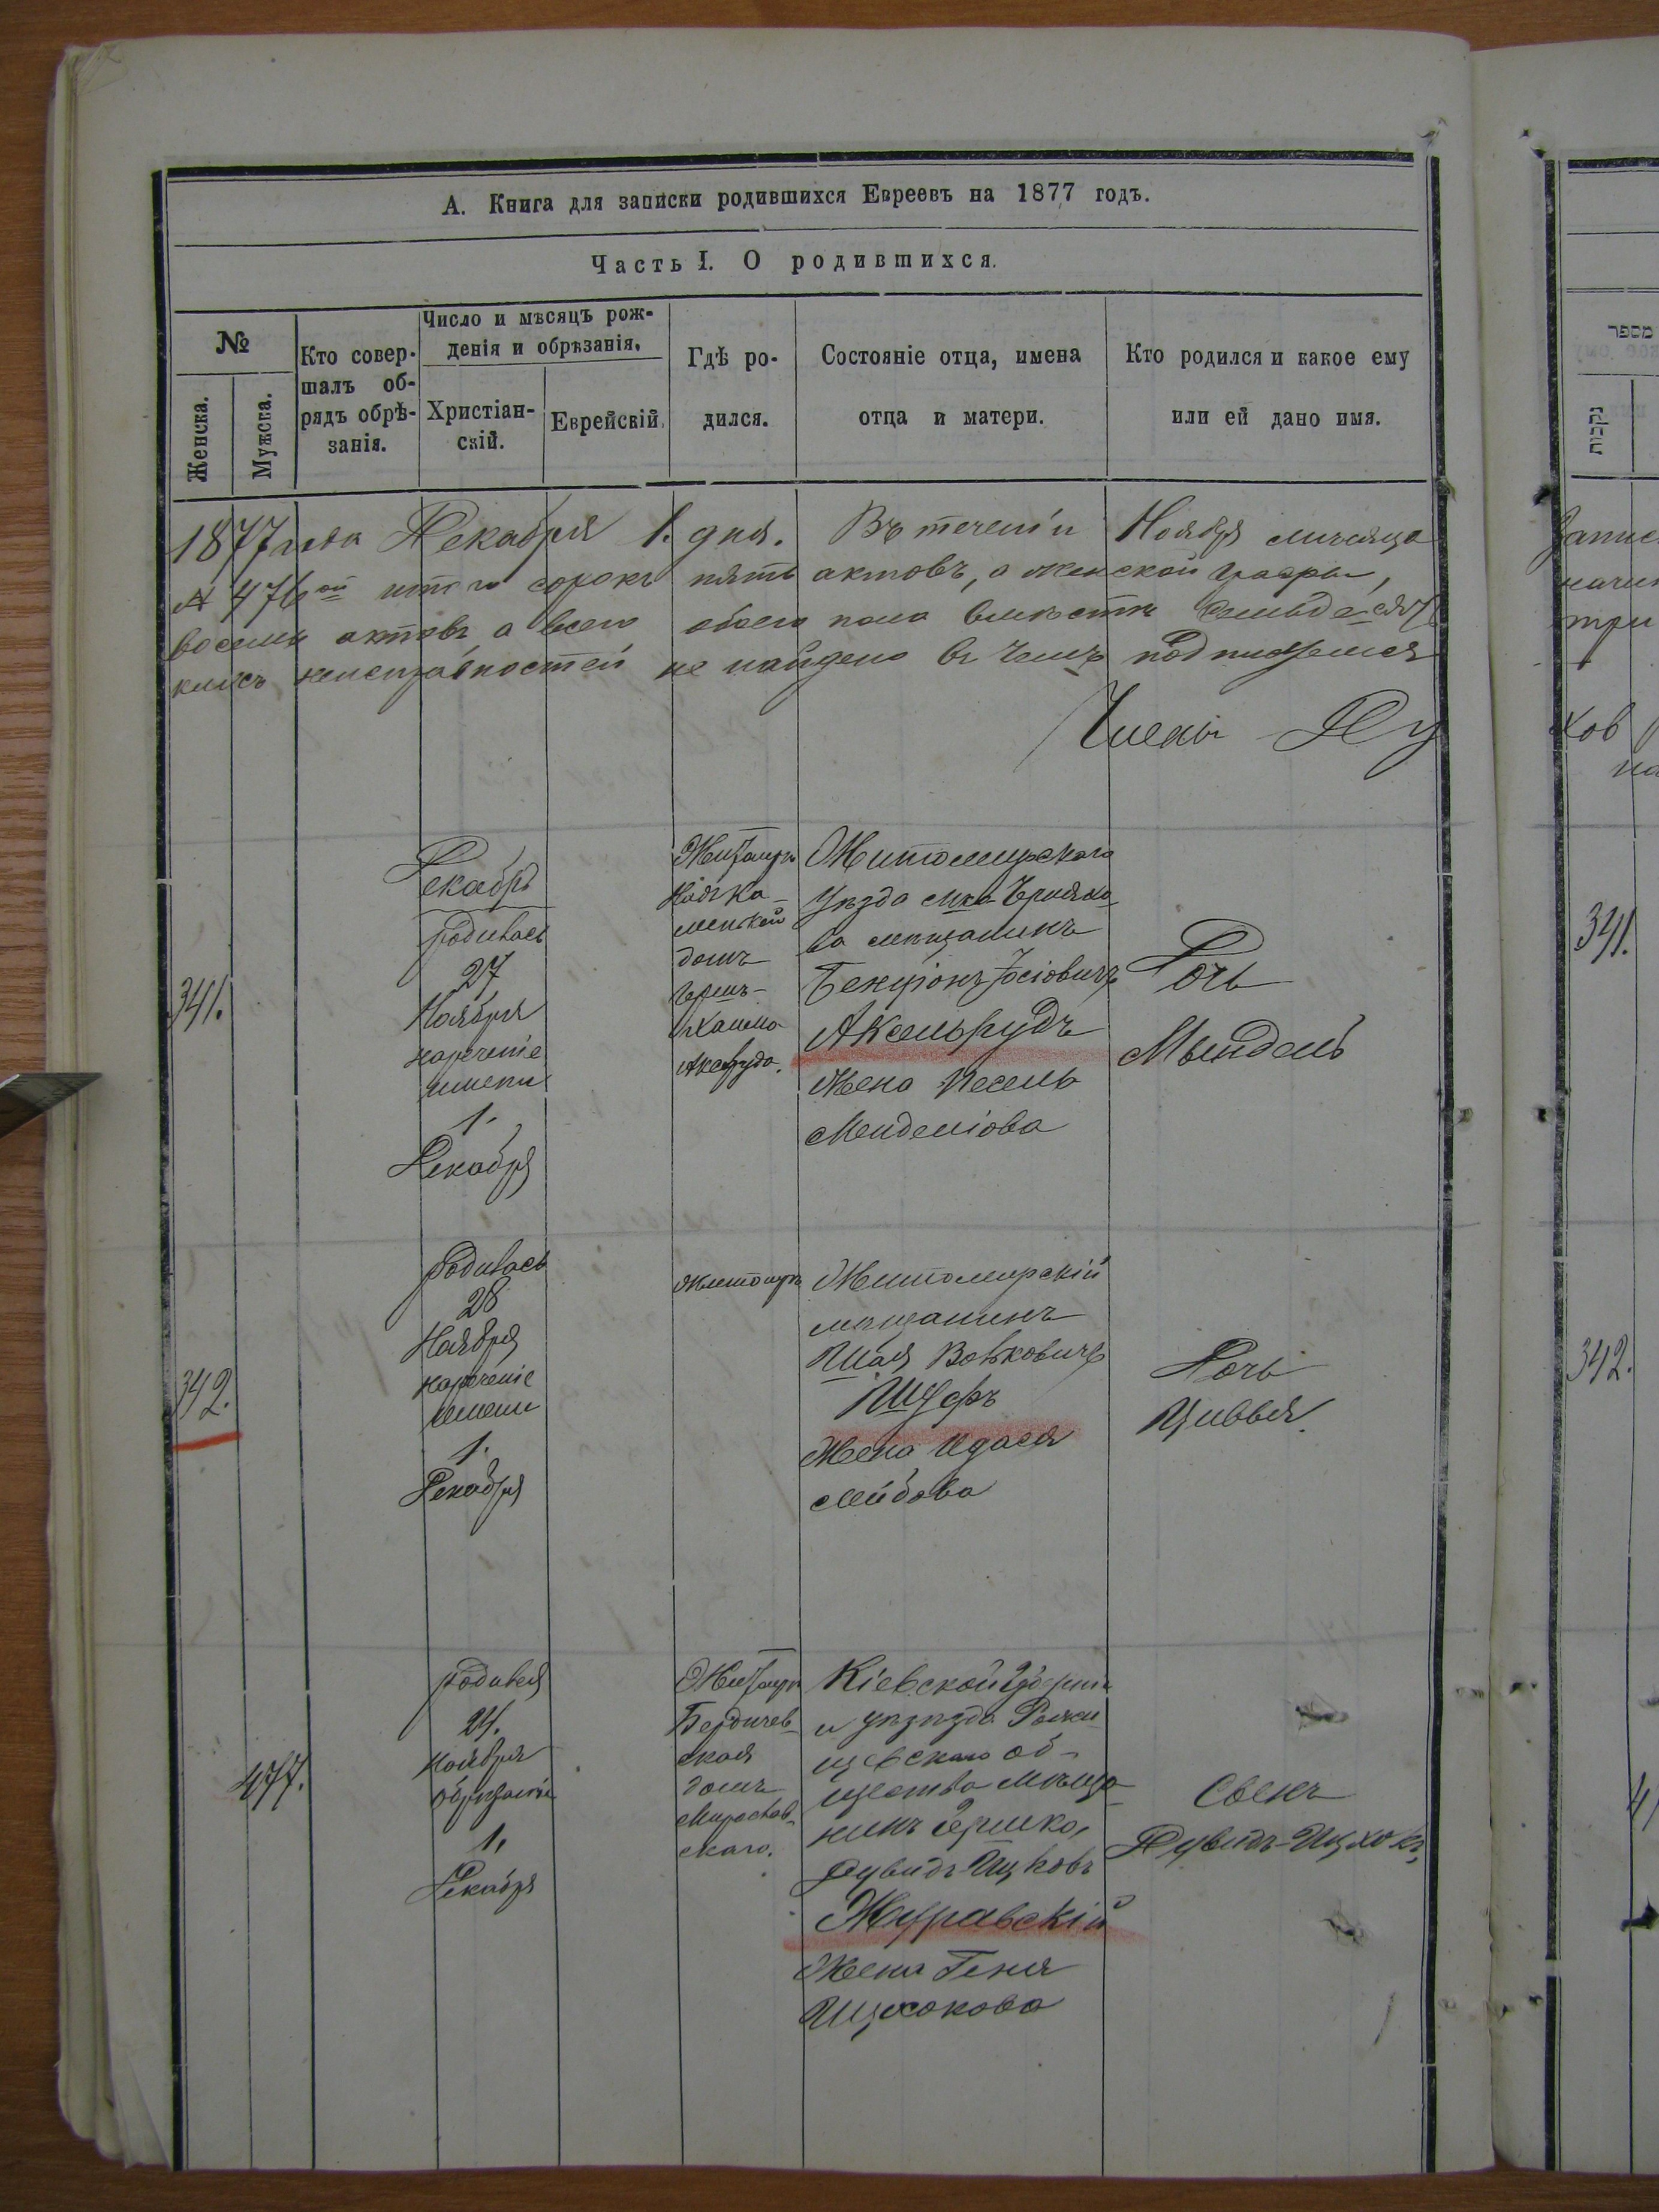 А. Книга для записки родившихся Евреевъ на 1877 годъ.
Часть I. О родившихся.
№
Женска.
Мужска.
Кто совер-
шалъ об-
рядъ обрѣ-
занія.
Число и мѣсяцъ рож-
денія и обрѣзанія.
Христіан-
скій.
Еврейскій.
Гдѣ ро-
дился.
Состояніе отца, имена
отца и матери.
Кто родился и какое ему
или ей дано имя.
1877 года Декабря 1. дня. Въ теченіи Ноября мисяца
№ 476ой итого сорокъ пять актовъ, а женской
восемь актовъ, а всего обоего пола вместѣ семьдесят
неисправностей не найдено въ чемъ подписуемся
Члены Ду
341.
Декабрь
родилась
27
Ноября
нареченіе
имени
1.
Декабря
Житомръ
домъ
Житомирскаго
Уѣзда мка Чернихо
ва мещанинъ
Бенціонъ Іосіовичъ
Аксельрудъ
Жена Песель
Менделіова
Дочь
Мындель
342.
родилась
28
Ноября
нареченіе
имени
1.
Декабря
Житомръ
Житомирскій
мещанинъ
Шая Вовковичъ
Шуфъ
Жена Идася
Лейбова
Дочь
Цивья.
477.
родился
24.
ноября
обрезаніе
1.
Декабря
Житомръ
Бердичев-
ская
домъ
Мирослав-
скаго.
Кіевской Губерніи
и уѣзда
об-
щества мѣща-
нинъ Гершко,
Дувидъ Ицковъ
Журавскій
Жена Геня
Ицхокова
Сынъ
Дувидъ-Ицхокъ,
מספר
נקבות
341.
342.